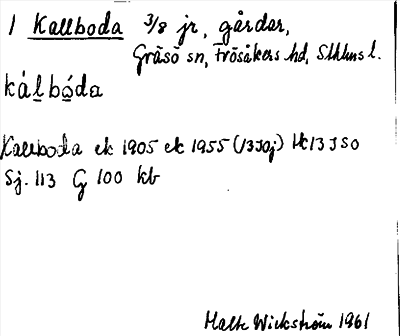 1 Kallboda 3/8 jr, gårdar,
Gräsö sn, Frösåkers hd, Sthlms l.
kálbóda
Kallboda ek 1905 ek 1955 (13J0j) HC 13 J SO
Sj. 113 G 100 kb
Malte Wickström 1961